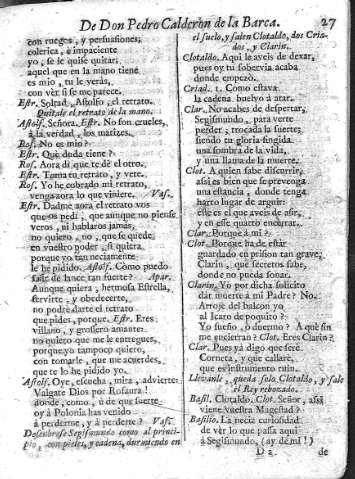 De Don Pedro Calderòn de la Barca. 27
con ruegos, y persuasiones;
colerica, è impaciente
yo, se le quise quitar;
aquel que en la mano tiene
es mio, tu le veràs,
con vèr si se me parece.
Estr. Soltad, Astolfo, el retrato.
Quitale el retrato de la mano.
Astolf. Señora. Estr. No son crueles,
à la verdad, los matizes.
Ros. No es mio?
Estr. Què duda tiene?
Ros. Aora dì que te dè el otro.
Estr. Toma tu retrato, y vete.
Ros. Yo he cobrado mi retrato,
venga aora lo que viniere. Vas.
Estr. Dadme aora el retrato vos
que os pedì, que aunque no piense
veros, ni hablaros jamàs,
no quiero, no, que se quede
en vuestro poder, si quiera
porque yo tan neciamente
le he pidido. Astolf. Còmo puedo
salir de lance tan fuerte? Apar.
Aunque quiera, hermosa Estrella,
servirte, y obedecerte,
no podrè darte el retrato
que pides, porque. Estr. Eres
villano, y grosero amante:
no quiero que me le entregues,
porque yo tampoco quiero,
con tomarle, que me acuerdes,
que te lo he pidido yo.
Astolf. Oye, escucha, mira, advierte:
Valgate Dios por Rosaura!
donde, como, ù de què suerte
oy à Polonia has venido
à perderme, y à perderte? Vas.
Descubrese Segismundo como al principio, con pieles, y cadena, durmiendo en
el suelo, y salen Clotaldo, dos Criados, y Clarin.
Clotaldo. Aqui le aveis de dexar,
pues oy su sobervia acaba
donde empezò.
Criad. 1. Como estava
la cadena buelvo à atar.
Clar. No acabes de despertar,
Segismundo, para verte
perder, trocada la suerte;
siendo tu gloria fingida
una sombra de la vida,
y una llama de la muerte.
Clot. A quien sabe discurrir,
assi es bien que se prevenga
una estancia, donde tenga
harto lugar de arguir:
este es el que aveis de asir,
y en esse quarto encerrar.
Clar. Porquè à mi?
Clot. Porque ha de estàr
guardado en prision tan grave,
Clarin, que secretos sabe,
donde no pueda sonar.
Clarin. Yo por dicha solicito
dàr muerte à mi Padre? No.
Arrojè del balcon yo
al Icaro de poquito?
Yo sueño, ò duermo? A què fin
me encierran? Clot. Eres Clarin?
Clar. Pues yà digo que serè
Corneta, y que callarè,
que es instrumento ruin.
Llevanle, queda solo Clotaldo, y sale
el Rey rebozado.
Basil. Clotaldo. Clot. Señor, assi
viene Vuestra Magestad?
Basilio. La necia curiosidad
de vèr lo que passa aqui
à Segismundo, (ay de mi!)
D 2 de